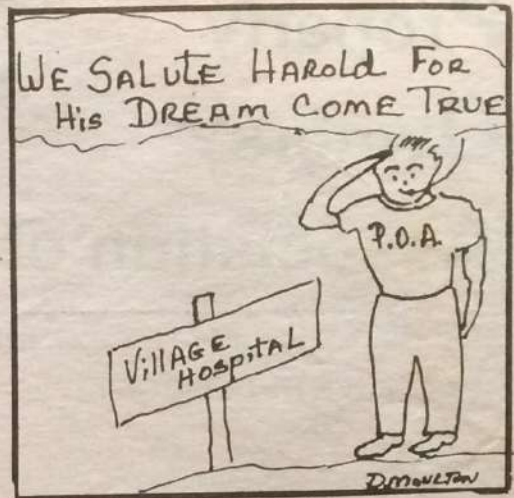 WE SALUTE HAROLD FOR
HIS DREAM COME TRUE
P.O.A.
VILLAGE
HOSPITAL
D.MOULTON